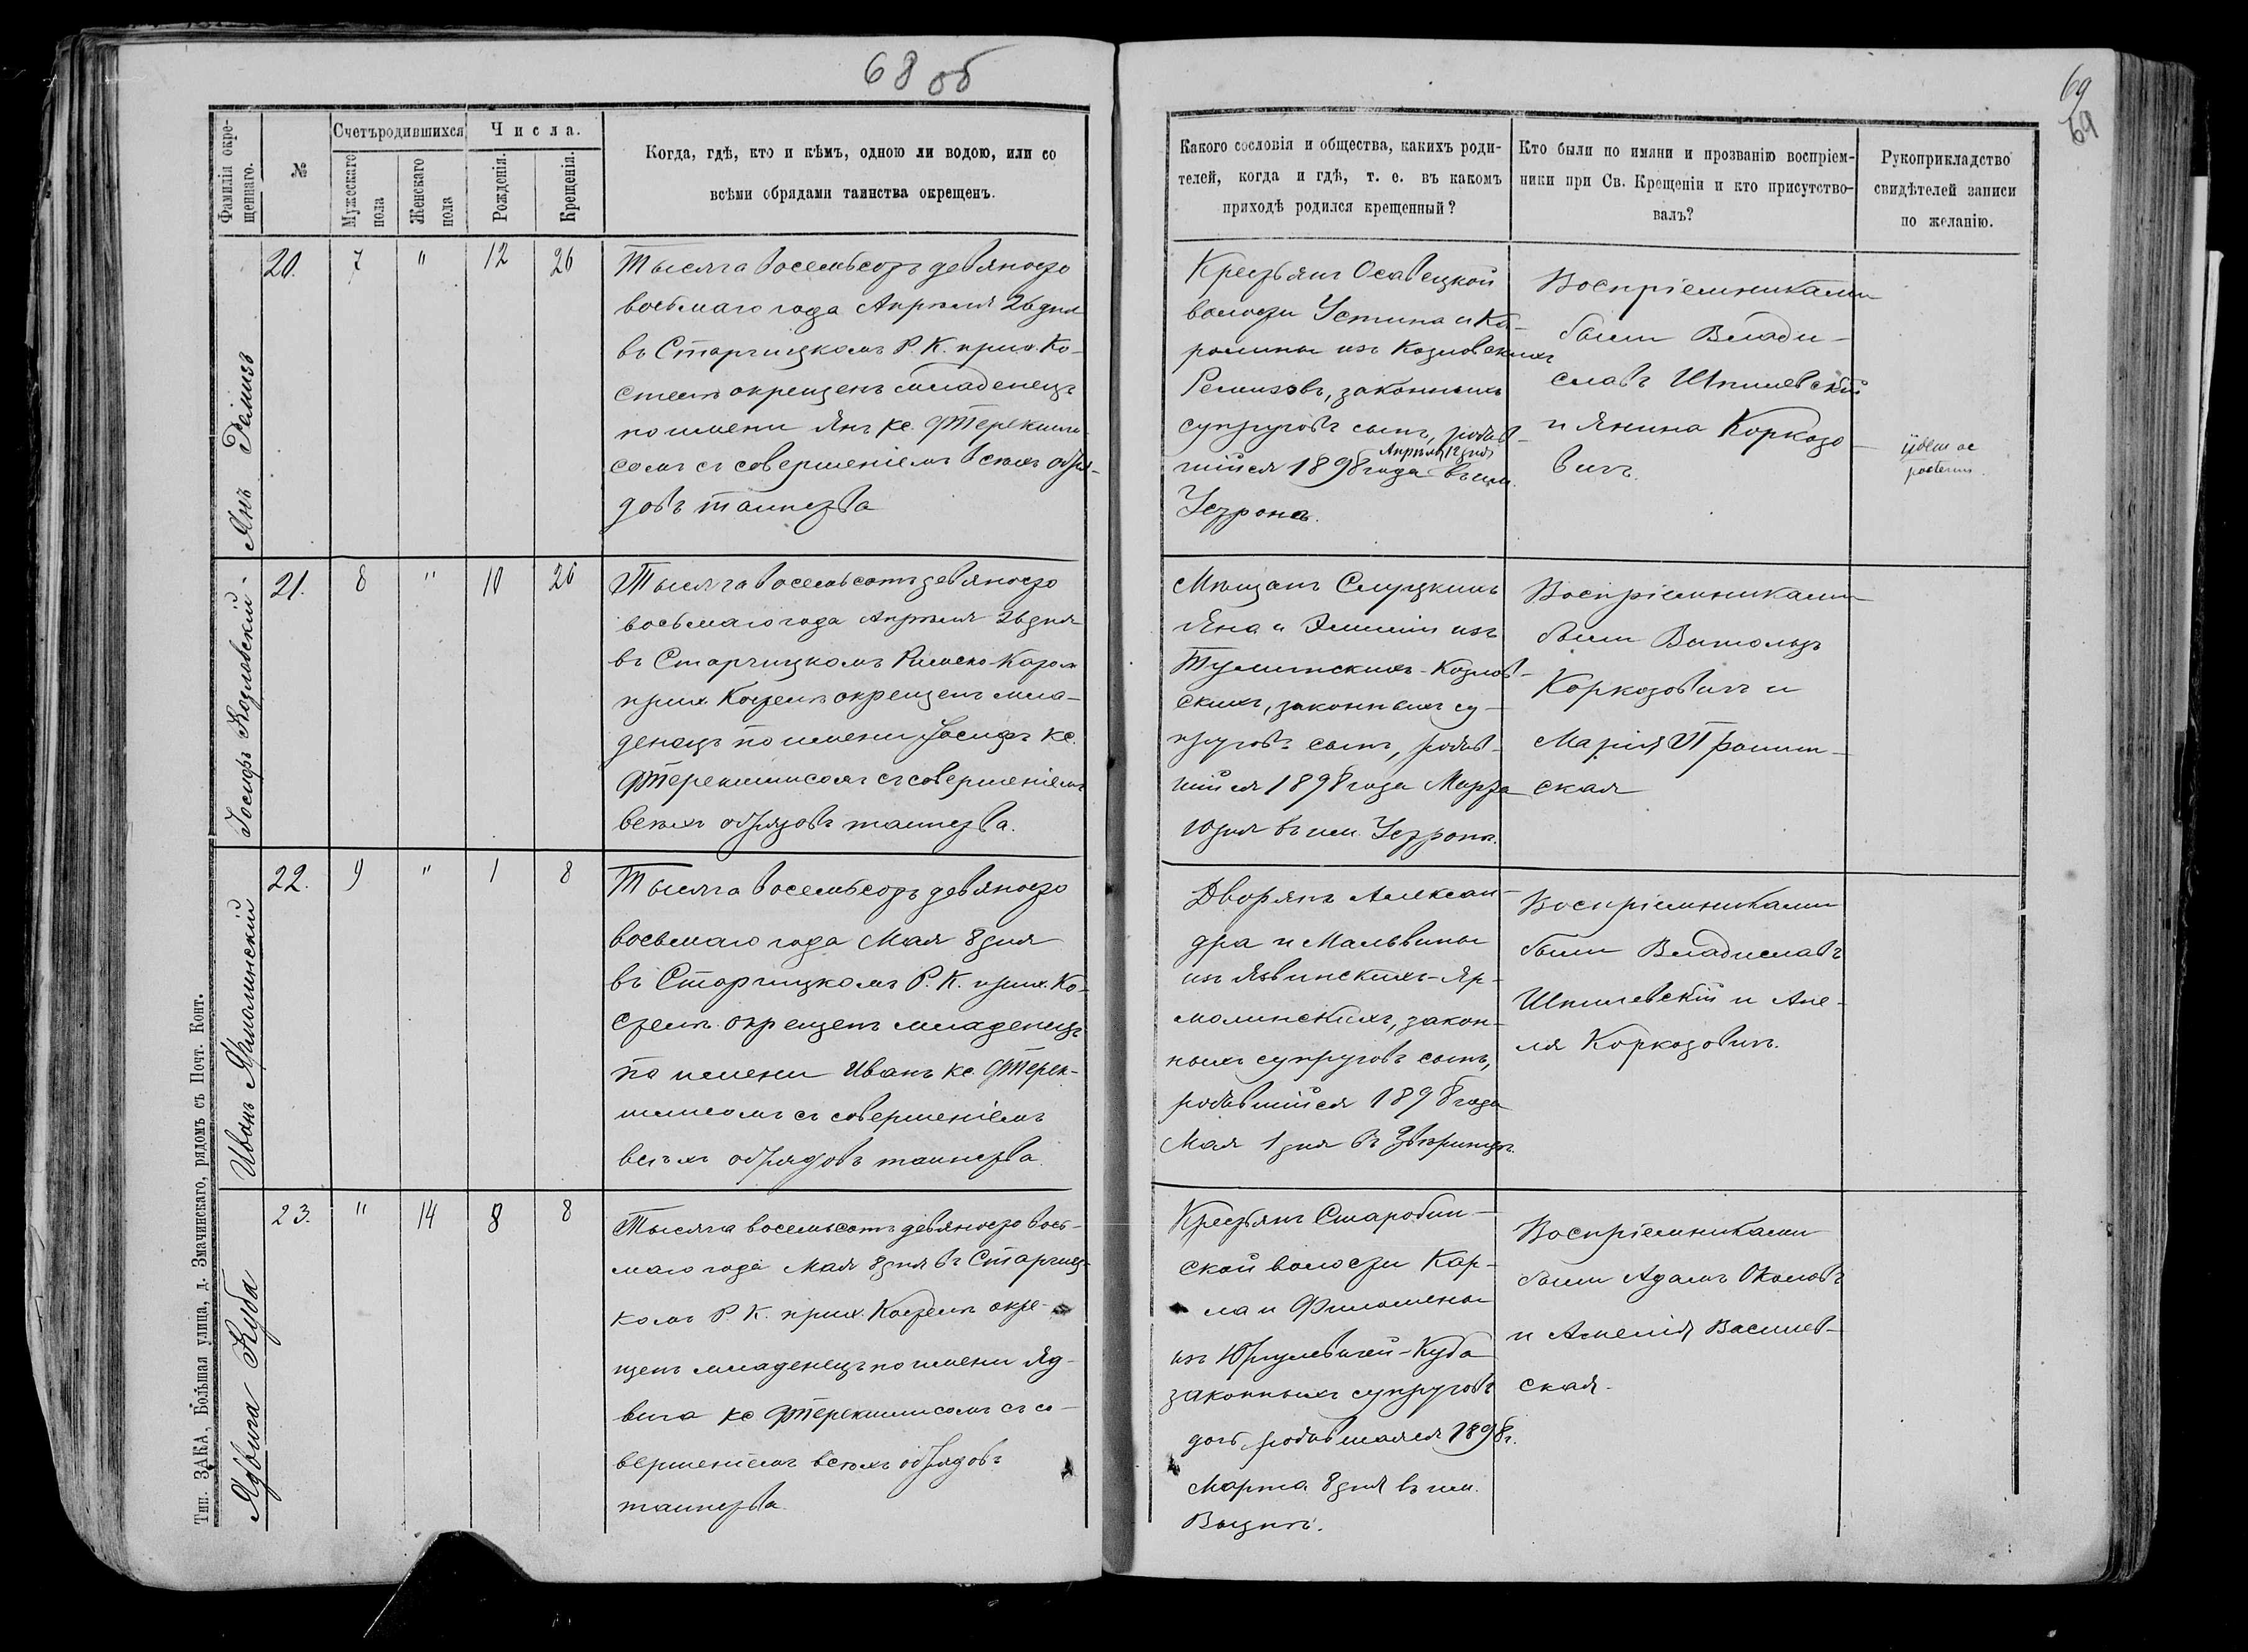 68 об
69
69
Фамилія окре-
щеннаго.
№
Счетъ родившихся
Мужескаго
пола
Женскаго
пола
Числа.
Рожденія.
Крещенія.
Когда, гдѣ, кто и кѣмъ, одною ли водою, или со
всѣми обрядами таинства окрещенъ.
Какого сословія и общества, какихъ роди-
телей, когда и гдѣ, т. е. въ какомъ
приходѣ родился крещенный?
Кто были по имяни и прозванію воспріем-
ники при Св. Крещеніи и кто присутство-
валъ?
Рукоприкладство
свидѣтелей записи
по желанію.
Янъ Ремизъ
20. 7 " 12 26
Тысяча восемьсотъ девяносто
восьмаго года Апрѣля 26 дня
въ Старчицкомъ Р. К. прих. Ко-
стелѣ окрещенъ младенецъ
по имени Янъ кс.
сомъ съ совершеніемъ всѣхъ обря-
довъ таинства
Крестьянъ Осовецкой
волости Устина и Ка-
ролины изъ Козловскихъ
Ремизовъ, законныхъ
супруговъ сынъ, родив-
Апрѣля 12 дня
шійся 1898 года въ им.
Устронь.
Воспріемниками
были Влади-
славъ Шпилевскій
и Янина Коркозо-
вичъ.
Іосифъ Козловскій.
21. 8 " 10 26
Тысяча восемьсотъ девяносто
восьмаго года Апрѣля 26 дня
въ Старчицкомъ Римско-Катол.
прих. Костелѣ окрещенъ мла-
денецъ по имени Іосифъ кс.
съ совершеніемъ
всѣхъ обрядовъ таинства.
Мѣщанъ Слуцкихъ
Яна и Эмиліи изъ
Козлов-
скихъ, законныхъ су-
пруговъ сынъ, родив-
шійся 1898 года Марта
10 дня въ им. Устронь.
Воспріемниками
были Витольдъ
Коркозовичъ и
Марія
ская
Иванъ Ярмолинскій
22. 9 " 1 8
Тысяча восемьсотъ девяносто
восьмаго года Мая 8 дня
въ Старчицкомъ Р. К. прих. Ко-
стелѣ окрещенъ младенецъ
по имени Иванъ кс.
съ совершеніемъ
всѣхъ обрядовъ таинства.
Дворянъ Алексан-
дра и Мальвины
изъ Язвинскихъ-Яр-
молинскихъ, закон-
ныхъ супруговъ сынъ,
родившійся 1898 года
Мая 1 дня въ Звѣринцѣ.
Воспріемниками
были Владиславъ
Шпилевскій и Ане-
ля Коркозовичъ.
Ядвига Куба
23. " 14 8 8
Тысяча восемьсотъ девяносто вось-
маго года Мая 8 дня въ Старчиц-
комъ Р. К. прих. Костелѣ окре-
щенъ младенецъ по имени Яд-
вига кс. съ со-
вершеніемъ всѣхъ обрядовъ
таинства.
Крестьянъ Старобин-
ской волости Кар-
ла и Филомены
изъ Юргулевичей-Куба
законныхъ супруговъ
дочь, родившаяся 1898 г.
Марта 8 дня въ им.
Воспріемниками
были Адамъ Околовъ
и Амелія Василев-
ская.
Тип. ЗАКА, Большая улица, д. Змачинскаго, рядомъ съ Почт. Конт.